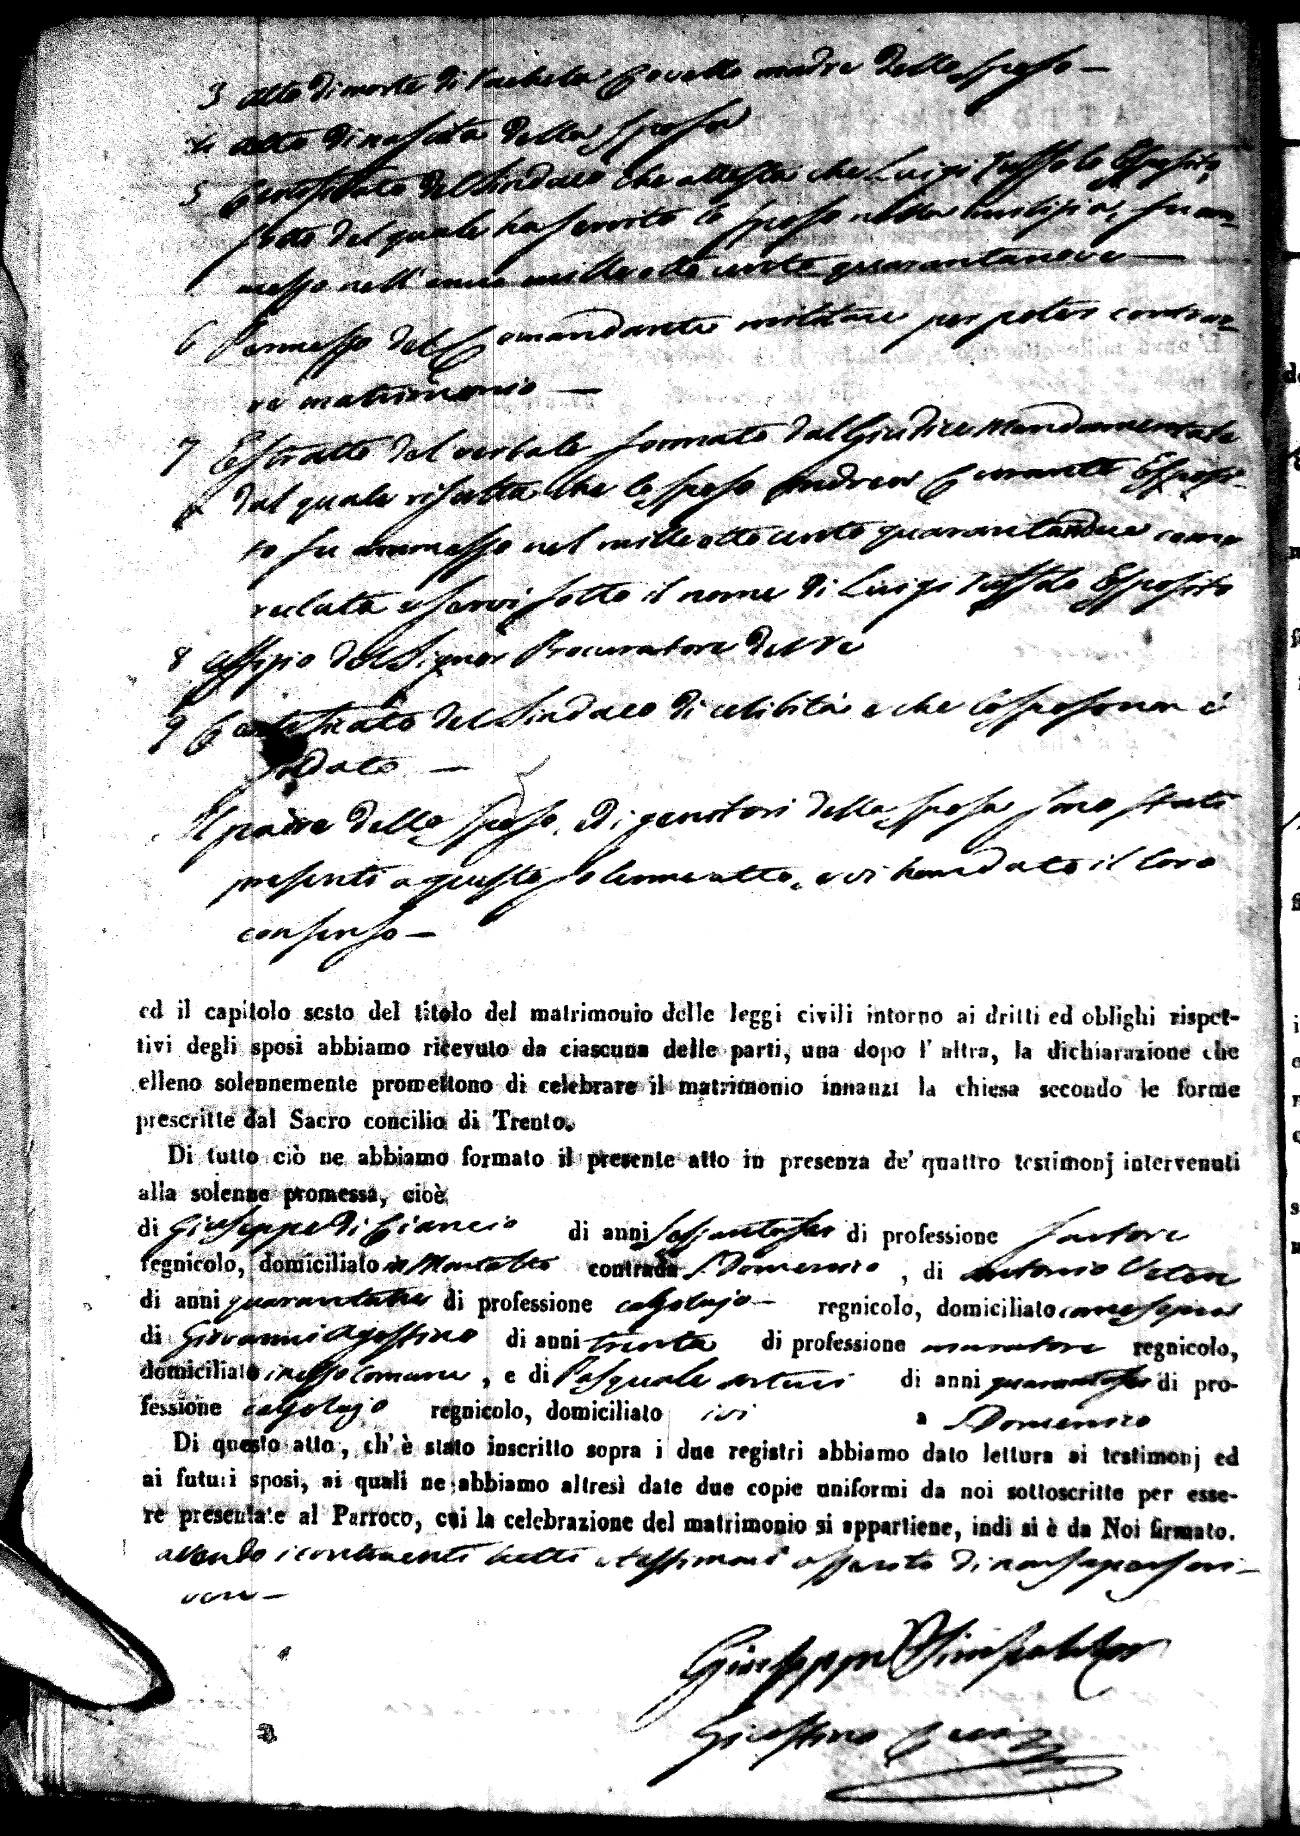 3 Atto di morte di Rachela Covello madre dello sposo —
4 Atto di nascita della sposa
5 Certificato del Sindaco che attesta che Luigi Esposito,
sotto del quale ha servito lo sposo nella milizia, fu am-
messo nell'anno mille otto cento quarantanove —
6 Permesso del Comandante militare per poter contrar-
re matrimonio —
7 Estratto del verbale formato dal Giudice Mandamentale
dal quale risulta che lo sposo Andrea Esposi-
to fu ammesso nel mille otto cento quarantadue come
recluta e servì sotto il nome di Luigi Esposito
8 del Signor Procuratore del Re
9 Certificato del Sindaco di celibità e che lo sposo non è
soldato —
Il padre dello sposo, ed i genitori della sposa sono stati
presenti a questo solenne atto, e vi han dato il loro
consenso —
ed il capitolo sesto del titolo del matrimonio delle leggi civili intorno ai dritti ed oblighi rispet-
tivi degli sposi abbiamo ricevuto da ciascuna delle parti, una dopo l'altra, la dichiarazione che
elleno solennemente promettono di celebrare il matrimonio innanzi la chiesa secondo le forme
prescritte dal Sacro concilio di Trento.
Di tutto ciò ne abbiamo formato il presente atto in presenza de' quattro testimonj intervenuti
alla solenne promessa, cioè
di Giuseppe di Ciancio di anni sessantasei di professione sartore
regnicolo, domiciliato in Montalto contrada S. Domenico , di Antonio
di anni quarantatre di professione calzolajo — regnicolo, domiciliato come sopra
di Giovanni Agostino di anni trenta di professione muratore regnicolo,
domiciliato in esso Comune , e di Pasquale Arturi di anni quarantasei di pro-
fessione calzolajo regnicolo, domiciliato ivi a S. Domenico
Di questo atto, ch'è stato inscritto sopra i due registri abbiamo dato lettura ai testimonj ed
ai futuri sposi, ai quali ne abbiamo altresì date due copie uniformi da noi sottoscritte per esse-
re presentate al Parroco, cui la celebrazione del matrimonio si appartiene, indi si è da Noi firmato.
avendo i contraenti tutti e testimoni asserito di non saper scri-
vere —
Giuseppe
Giustino